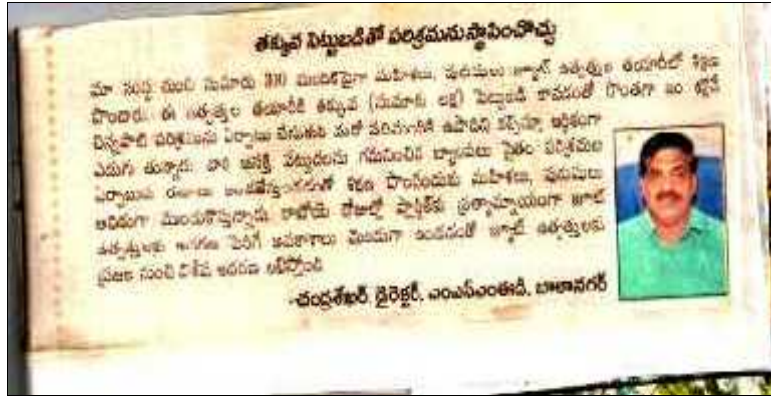 తక్కువ పెట్టుబడితో పరిశ్రమను స్థాపించొచ్చు
మా సంస్థ నుంచి సుమారు 300 మందికిపైగా మహిళలు, పురుషులు జ్యూట్ ఉత్పత్తుల తయారీలో శిక్షణ
పొందారు. ఈ ఉత్పత్తుల తయారీకి తక్కువ (సుమారు లక్ష) పెట్టుబడి కావడంతో సొంతగా ఇంట్లోనే
చిన్నపాటి పరిశ్రమను ఏర్పాటు చేసుకుని మరో పదిమందికి ఉపాధిని కల్పిస్తూ ఆర్థికంగా
ఎదుగుతున్నారు. వారి ఆసక్తి పట్టుదలను గమనించిన బ్యాంకులు సైతం పరిశ్రమల
ఏర్పాటుకు రుణాలు శిక్షణ పొందేందుకు మహిళలు, పురుషులు
అధికంగా ముందుకొస్తున్నారు. రాబోయే రోజుల్లో ప్లాస్టిక్‌కు ప్రత్యామ్నాయంగా జ్యూట్
ఉత్పత్తులకు ఆదరణ పెరిగే అవకాశాలు మెండుగా ఉండడంతో జ్యూట్ ఉత్పత్తులకు
ప్రజల నుంచి విశేష ఆదరణ లభిస్తోంది.
-చంద్రశేఖర్, డైరెక్టర్, ఎంఎస్ఎంఈడి, బాలానగర్